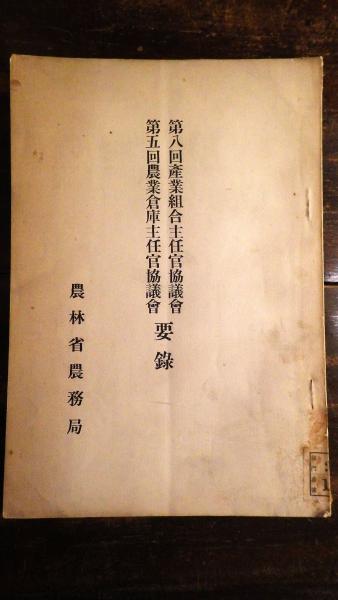 第八回產業組合主任官協議會
第五回農業倉庫主任官協議會
要錄
農林省農務局